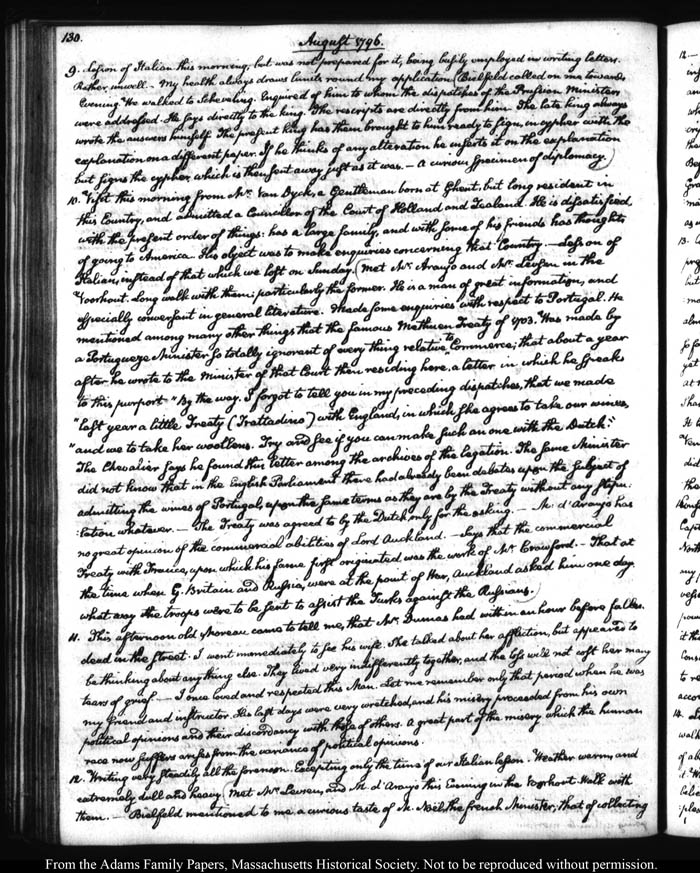 130.
August 1796.
9. Lesson of Italian this morning, but was not prepared for it, being busily employed in writing letters.
Rather unwell. – My health always draws limits round my application. (Bielfeld called on me towards
Evening. We walked to Scheveling. Enquired of him to whom the dispatches of the Prussian Ministers
were addressed. He says directly to the king. The rescripts are directly from him. The late king always
wrote the answers himself. The present king has them brought to him ready to sign, in cypher with the
explanation on a different paper. If he thinks of any alteration he inserts it on the explanation
but signs the cypher, which is then sent away just as it was. – A curious specimen of diplomacy.)
10. Visit this morning from Mr. Van Dyck, a Gentleman born at Ghent, but long resident in
this Country, and admitted a Councillor of the Court of Holland and Zealand. He is dissatisfied
with the present order of things: has a large family, and with some of his friends has thoughts
of going to America. His object was to make enquiries concerning that Country. – Lesson of
Italian, instead of that which we lost on Sunday. (Met Mr. Araujo and Mr. Levsen in the
Voorhout. Long walk with them: particularly the former. He is a man of great information, and
especially conversant in general literature. Made some enquiries with respect to Portugal. He
mentioned among many other things that the famous Methuen Treaty of 1703. Was made by
a Portugueze Minister so totally ignorant of every thing relative to Commerce; that about a year
after he wrote to the Minister of that Court then residing here, a letter in which he speaks
to this purport "By the way. I forgot to tell you in my preceding dispatches, that we made
"last year a little Treaty (Trattadino) with England, in which she agrees to take our wines,
"and we to take her woollens. Try and see if you can make such an one with the Dutch."
The Chevalier says he found this letter among the archives of the legation. The same Minister
did not know that in the English Parliament there had already been debates upon the subject of
admitting the wines of Portugal, upon the same terms as they are by the Treaty without any stipu-
lation whatever. – The Treaty was agreed to by the Dutch, only for the asking. – M. d'Araujo has
no great opinion of the commercial abilities of Lord Auckland. – Says that the commercial
Treaty with France, upon which his fame first originated was the work of Mr. Crawford. – That at
the time when G. Britain and Russia, were at the point of War, Auckland asked him one day.
what way the troops were to be sent to assist the Turks against the Russians.)
11. This afternoon old Moreau came to tell me, that Mr. Dumas had within an hour before fallen
dead in the street. I went immediately to see his wife. She talked about her affliction, but appeared to
be thinking about any thing else. They lived very indifferently together, and the loss will not cost her many
tears of grief. – I once loved and respected this Man. Let me remember only that period when he was
my friend and instructor. His last days were very wretched, and his misery proceeded from his own
political opinions and their discordancy with those of others. A great part of the misery which the human
race now suffers arises from the variance of political opinions.
12. Writing very steadily all the forenoon. Excepting only the time of our Italian lesson. Weather warm, and
extremely dull and heavy. (Met Mr. Levsen, and M. d'Araujo this Evening in the Voorhout. Walk with
them. – Bielfeld mentioned to me a curious taste of M. Noël the french Minister; that of collecting
From the Adams Family Papers, Massachusetts Historical Society. Not to be reproduced without permission.